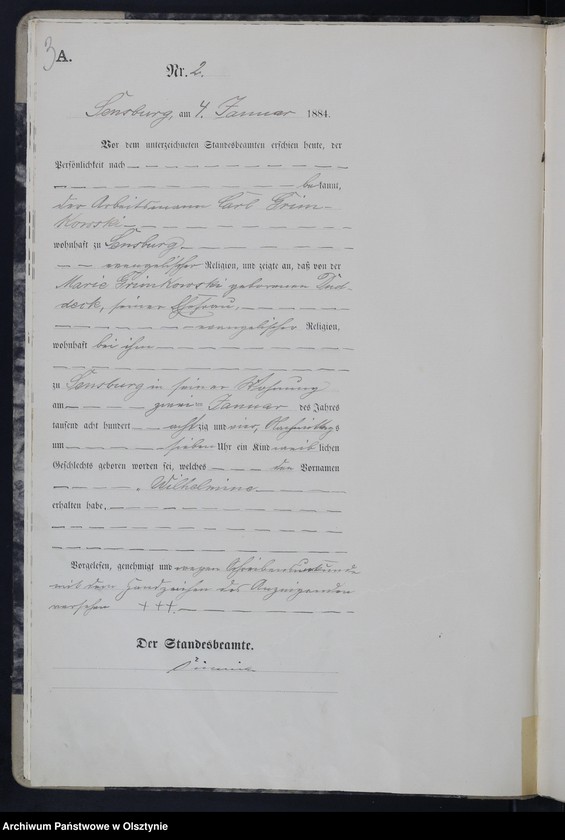 3
A.
Nr. 2.
Sensburg, am 4. Januar 1884.
Vor dem unterzeichneten Standesbeamten erschien heute, der
Persönlichkeit nach
bekannt,
der Arbeitsmann Carl Grim-
kowski
wohnhaft zu Sensburg
evangelischer Religion, und zeigte an, daß von der
Marie Grimkowski geborenen
deck, seiner Ehefrau,
evangelischer Religion,
wohnhaft bei ihm
zu Sensburg in seiner Wohnung
am zwei Januar des Jahres
tausend acht hundert achtzig und vier, Nachmittags
um sieben Uhr ein Kind weiblichen
Geschlechts geboren worden sei, welches den Vornamen
Wilhelmine
erhalten habe.
Vorgelesen, genehmigt und wegen Schreibensunkunde
mit dem Handzeichen des Anzeigenden
versehen +++.
Der Standesbeamte.
Archiwum Państwowe w Olsztynie